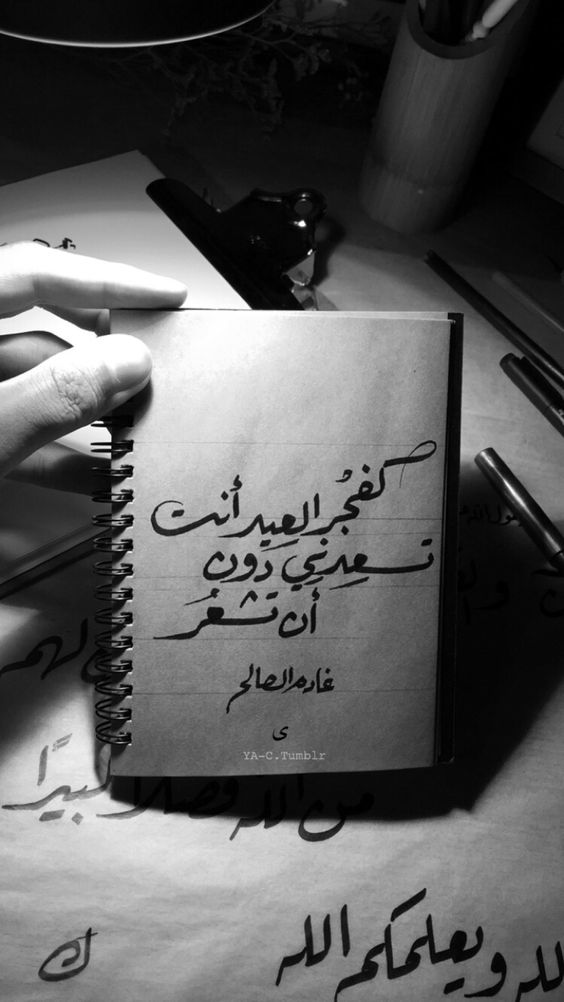 كفجر العيد أنت
تسعدني دون
أن تشعر
غاده الصالح
ى
YA-C.Tumblr
من الله فضلا كبيرًا
الله ويعلمكم الله
ك